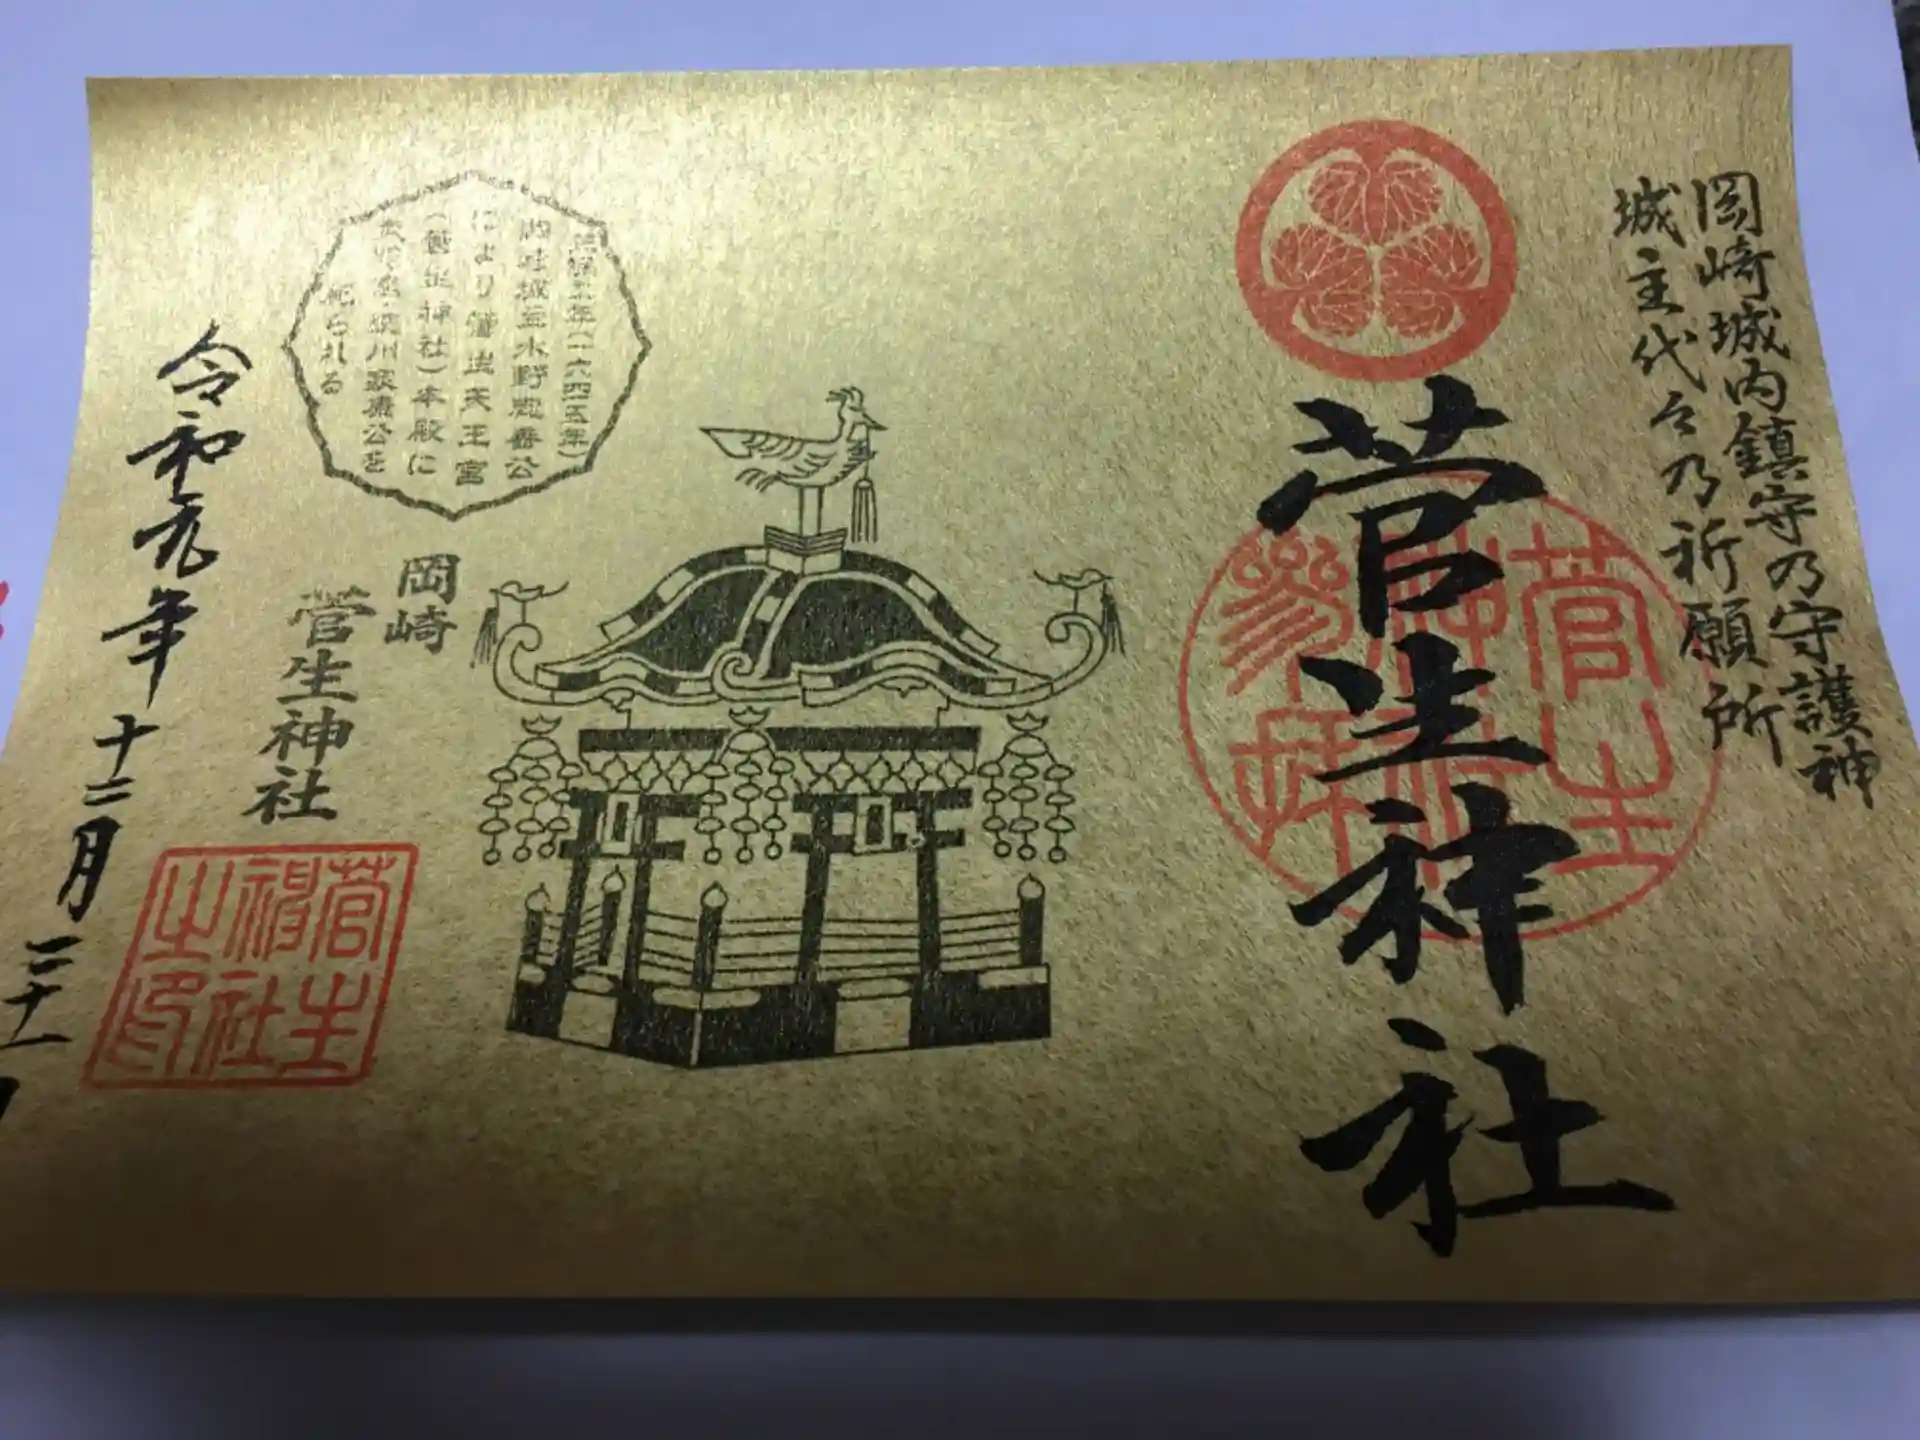 岡崎城内鎮守乃守護神
城主代々乃祈願所
菅生神社
(一六四五年)
岡崎城主水野忠善公
により菅生天王宮
(菅生神社)本殿に
徳川家康公を
祀られる
岡崎
菅生神社
菅生
神社
之印
令和元年十二月三十一